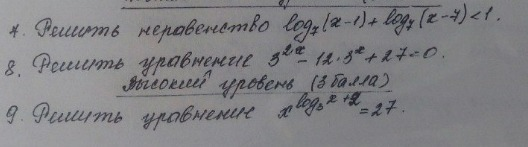 7. Решить неравенство log₇(x-1)+log₇(x-7)<1.
8. Решить уравнение 3²ˣ-12·3ˣ+27=0.
Высокий уровень (3 балла)
9. Решить уравнение x^(log₃x+2)=27.